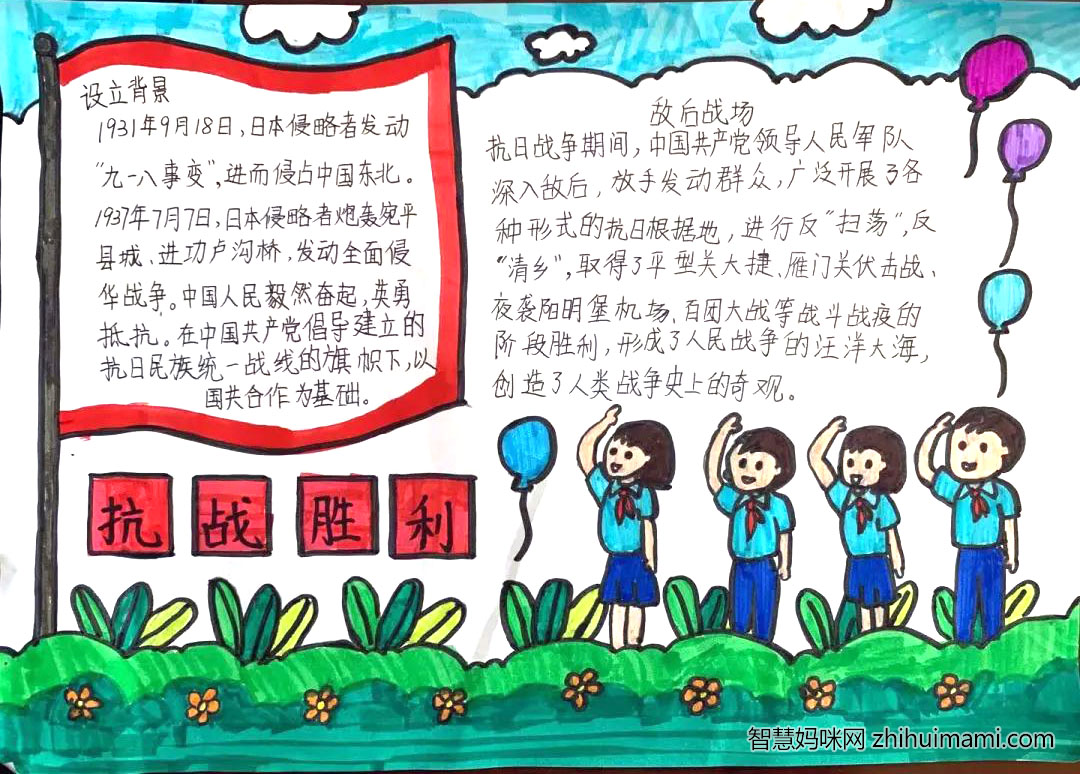 设立背景
1931年9月18日,日本侵略者发动
“九一八事变”,进而侵占中国东北。
1937年7月7日,日本侵略者炮轰宛平
县城、进功卢沟桥,发动全面侵
华战争。中国人民毅然奋起,英勇
抵抗。在中国共产党倡导建立的
抗日民族统一战线的旗帜下,以
国共合作为基础。
抗战胜利
敌后战场
抗日战争期间,中国共产党领导人民军队
深入敌后,放手发动群众,广泛开展了各
种形式的抗日根据地,进行反“扫荡”,反
“清乡”,取得了平型关大捷、雁门关伏击战、
夜袭阳明堡机场、百团大战等战斗战疫的
阶段胜利,形成了人民战争的汪洋大海,
创造了人类战争史上的奇观。
智慧妈咪网 zhihuimami.com